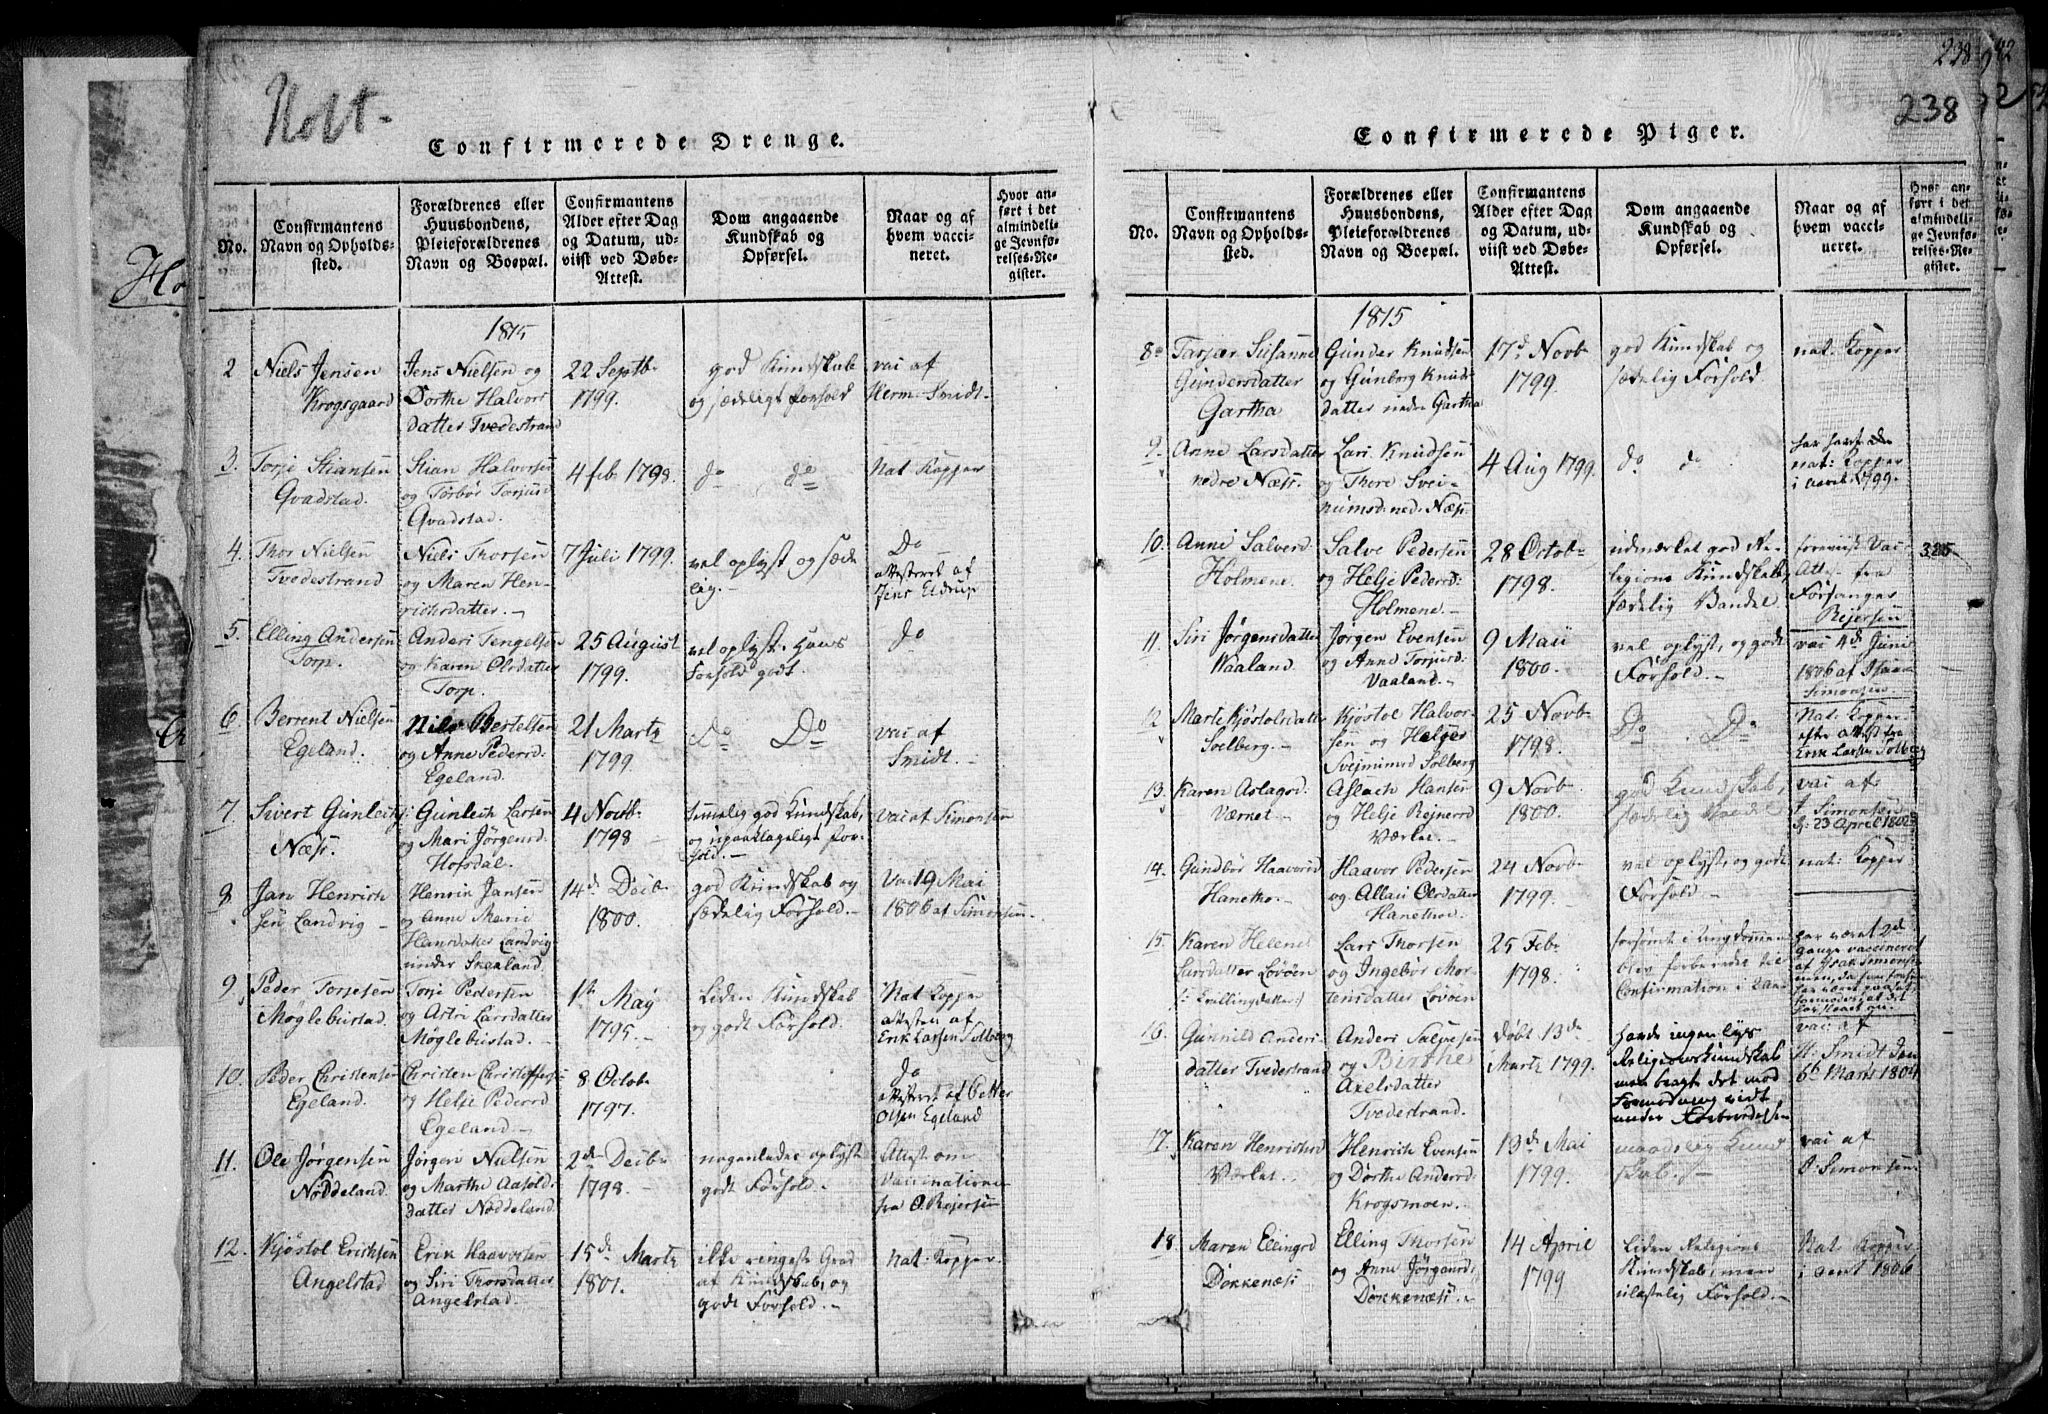 Holt.
Confirmerede Drenge.
No.
Confirmantens Navn og Opholds-
sted.
Forældrenes eller
Huusbondens,
Pleieforældrenes
Navn og Boepæl.
Confirmantens
Alder efter Dag
og Datum, ud-
viist ved Døbe-
Attest.
Dom angaaende
Kundskab og
Opførsel.
Naar og af
hvem vacci-
neret.
Hvor an-
ført i det
almindeli-
ge Jevnfø-
relses-Re-
gister.
1815
2
Niels Jensen
Krogsgaard
Jens Nielsen og
Dorthe Halvors
datter Tvedestrand
22 Septb.
1799.
god Kundskab
og sædeligt forhold
vac af
Herm. Smidt.
3.
Torje Stiansen
Qvadstad.
Stian Halvorsen
og Torbor Torjusd
Qvadstad.
4 feb. 1798.
do do
Nat. Kopper
4.
Thor Nielsen
Tvedestrand
Niels Thorsen
og Maren Hen-
richsdatter.
7 Juli 1799.
vel oplyst og sæde
lig.
Do
attesteret af
Jens Eldrup
5.
Elling Andersen
Torp.
Anders Tengelsen
og Karen Olsdatter
Torp.
25 August
1799.
vel oplyst. Hans
Forhold godt.
do
6.
Berrent Nielsen
Egeland.
Nils Bertelsen
og Anne Pedersd
Egeland.
21 Marts
1799
Do Do
vac af
Smidt.
7.
Sivert Gunlechs
Næss.
Gunlech Larsen
og Mari Jørgensd.
Hofsdal.
4 Novb.
1798
temmelig god Kundskab,
og upaaklageligt for-
hold.
Vac af Simonsen
8
Jan Henrich
sen Landvig
Henrik Jansen
og Anne Marie
Hansdatter Landvig
under Skaaland
14d Decb.
1800.
god Kundskab og
sædelig Forhold.
Vac 19 Mai
1806 af Simonsen.
9.
Peder Torjesen
Møglebustad.
Torje Pedersen
og Astri Larsdatter
Møglebustad.
1ste May
1795.
Liden Kundskab
og godt Forhold.
Nat Kopper
attesten af
Erik Larsen Solberg
10.
Peder Christensen
Egeland.
Christen Christophersen
og Helje Pedersd
Egeland.
8 Octob.
1797.
do
attesteret af Petter
Olsen Egeland
11.
Ole Jørgensen
Nøddeland.
Jørgen Nielsen
og Marthe Aasold.
datter Nøddeland.
2d Decb.
1798.
nogenledes oplyst
godt Forhold.
Attest om
Vaccinationen
fra O. Rejersen
12.
Kjøstol Erichsen
Angelstad
Erik Haavorsen
og Siri Thorsdatter
Angelstad.
15d Marts
1801.
ikke ringeste Grad
af Kundskab, og
godt Forhold.
Nat. Kopper.
238
238
Confirmerede Piger.
No.
Confirmantens
Navn og Opholds-
sted.
Forældrenes eller
Huusbondens,
Pleieforældrenes
Navn og Boepæl.
Confirmantens
Alder efter Dag
og Datum, ud-
viist ved Døbe-
Attest.
Dom angaaende
Kundskab og
Opførsel.
Naar og af
hvem vacci-
neret.
Hvor an-
ført i det
almindeli-
ge Jevnfø-
relses-Re-
gister.
1815
8
Tarjær Susanne
Gundersdatter
Gartha
Gunder Knudsen
og Gunborg Knuds
datter nedre Gartha
17d Novb
1799.
god Kundskab og
sædelig Forhold.
nat. Kopper
9.
Anne Larsdatter
nedre Næss.
Lars Knudsen
og Thore Svei-
numsd. ned. Næs.
4 Aug 1799.
do do
har havt de
nat: Kopper
i 1799.
10.
Anne Salvesd
Holmene.
Salve Pedersen
og Helje Pedersd:
Holmene.
28 Octob.
1798.
udmærket god Re-
ligions Kundskab,
sædelig Vandel.
foreviist Vac-
Att. fra
Forsanger
Rejersen
325
11.
Siri Jørgensdatter
Waaland.
Jørgen Evensen
og Anne Torjusd:
Vaaland.
9 Maii
1800.
vel oplyst, og godt
Forhold.
vac 4d Juni
1806 af Isaac
Simonsen.
12
Marte Kjøstolsdatter
Solberg.
Kjøstol Halvor-
sen og Helger
Svejnumsd Solberg
25 Novb
1798.
Do Do
Nat. Kopper.
efter Attest fra
Erik Larsen Solberg
13.
Karen Aslagsd.
Værnet
Aslach Hansen
og Helje Rejnersd
Værket.
9 Novb.
1800.
god Kundskab,
sædelig Vandel
vac af
J. Simonsen
d. 23 April 1802
14.
Gundbor Haavorsd
Hanetho.
Haavor Pedersen
og Allau Olsdatter
Hanethoe.
24 Novb
1799.
vel oplyst, og godt
Forhold.
nat: Kopper
15.
Karen Helene
Larsdatter Løvøen
(: tvillingdatter:)
Lars Thorsen
og Ingebor Mor-
tensdatter Løvøen
25 Feb.
1798.
forsømt i Ungdommen
blev forberedet til
Confirmation i
har været 2de
gange vaccineret
af Isak Simonsen
16.
Gunnild Anders
datter Tvedestrand
Anders Salvesen
og Birthe
Axelsdatter
Tvedestrand.
Døbt 13de
Marts 1799.
Havde ingen lys
Religionskundskab
men bragt det mod
Formodning vidt
under Forberedelsen
vac: af
H. Smidt den
6te Marts 1804
17.
Karen Henrichsd
Værket.
Henrich Evensen
og Dorthe Andersd:
Krogsmoen.
13de Mai
1799.
maadelig Kund
skab.
vac af
J. Simonsen.
18.
Maren Ellingsd
Døkkenæs
Elling Thorsen
og Anne Jørgensd:
Døkkenæs.
14 April
1799
Liden Religions
Kundskab, men
ulastelig Forhold.
Nat. Kopper
i 1806